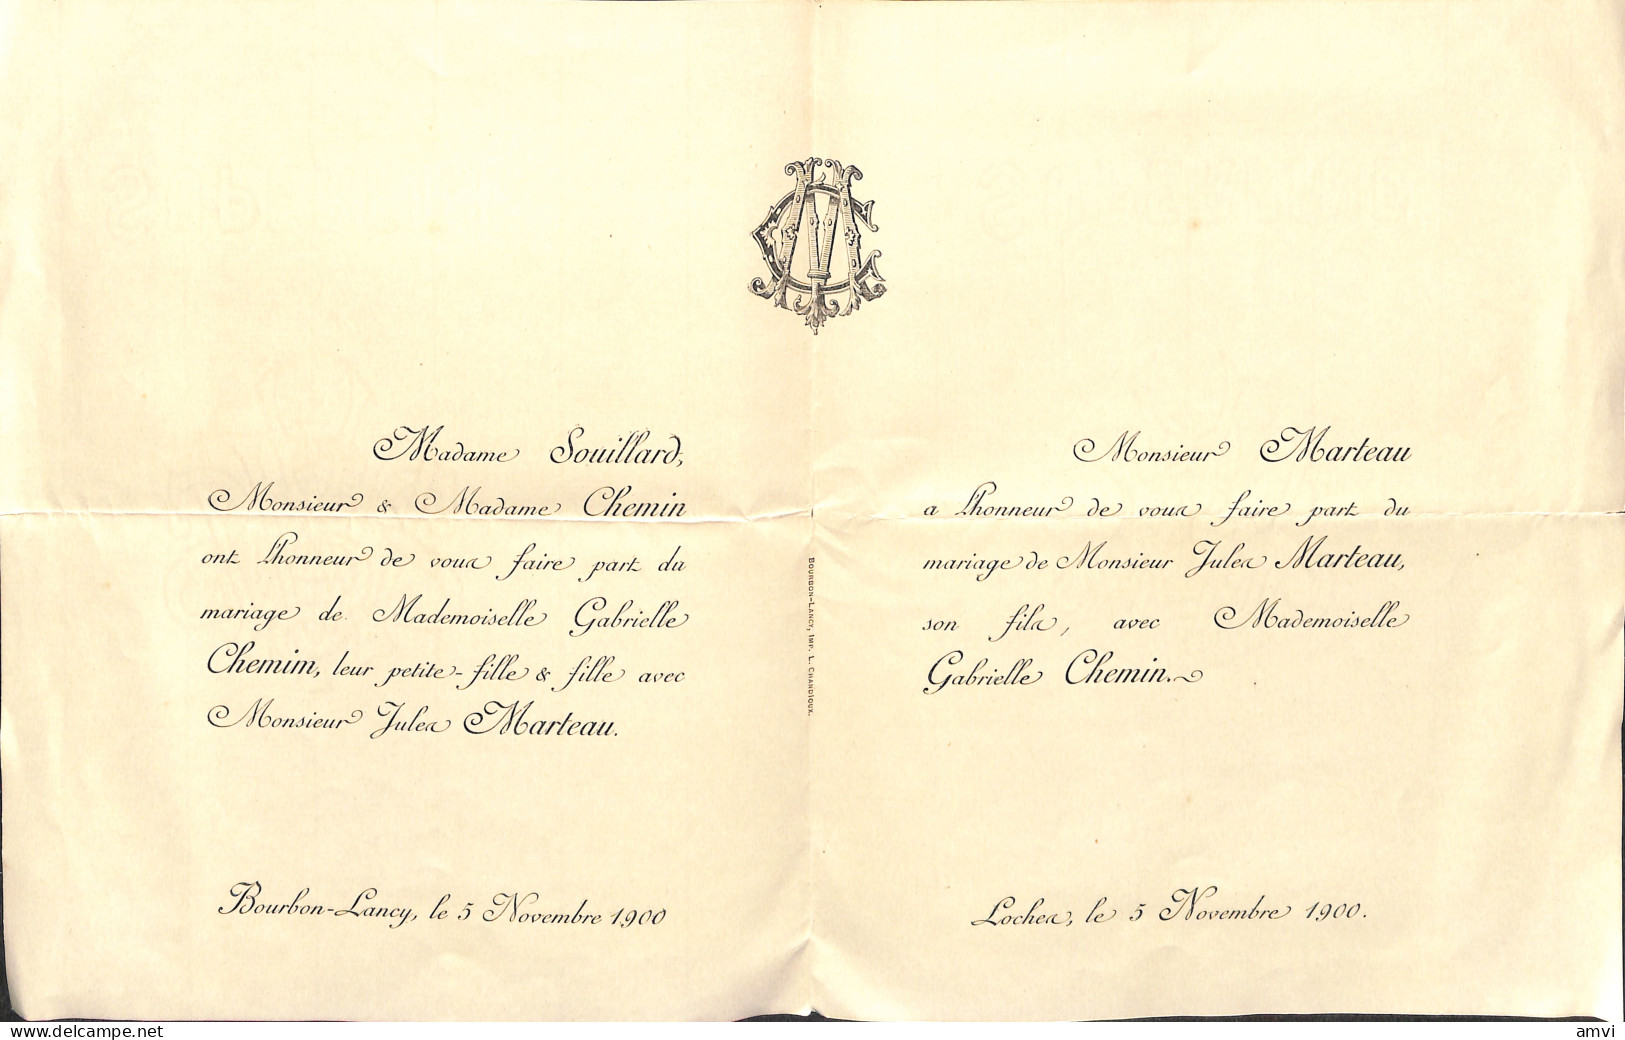 CM
Madame Souillard,
Monsieur & Madame Chemin
ont l'honneur de vous faire part du
mariage de Mademoiselle Gabrielle
Chemim, leur petite-fille & fille avec
Monsieur Jules Marteau.
Bourbon-Lancy, le 5 Novembre 1900
BOURBON-LANCY, IMP. L. CHANDIOUX.
Monsieur Marteau
a l'honneur de vous faire part du
mariage de Monsieur Jules Marteau,
son fils, avec Mademoiselle
Gabrielle Chemin.
Loches, le 5 Novembre 1900.
www.delcampe.net
amvi